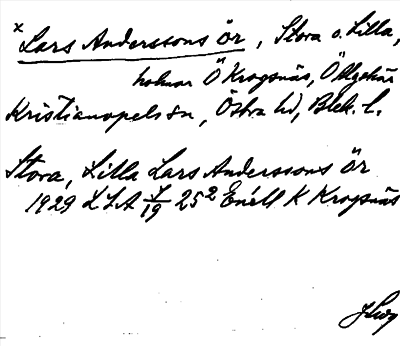 x Lars Anderssons ör, Stora o. Lilla,
holmar Ö Krogsnäs, Ö
Kristianopels sn, Östra hd, Blek. l.
Stora, Lilla Lars Anderssons ör
1929 LLA 25² Enéll K Krogsnäs